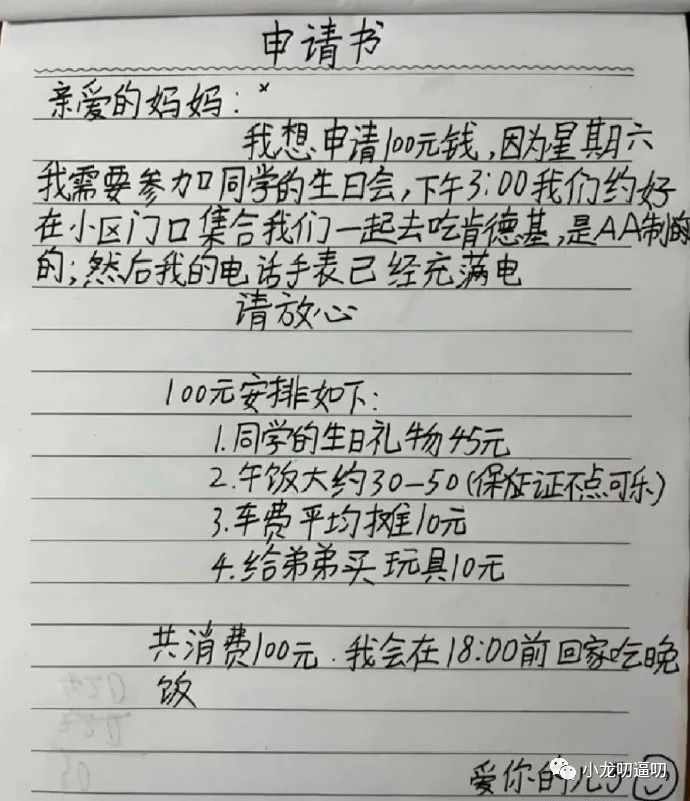 申请书
亲爱的妈妈：
我想申请100元钱，因为星期六
我需要参加同学的生日会，下午3:00我们约好
在小区门口集合我们一起去吃肯德基，是AA制的
的；然后我的电话手表已经充满电
请放心
100元安排如下：
1.同学的生日礼物45元
2.午饭大约30-50(保征证不点可乐)
3.车费平均摊10元
4.给弟弟买玩具10元
共消费100元.我会在18:00前回家吃晚
饭
爱你的儿子
小龙叨逼叨